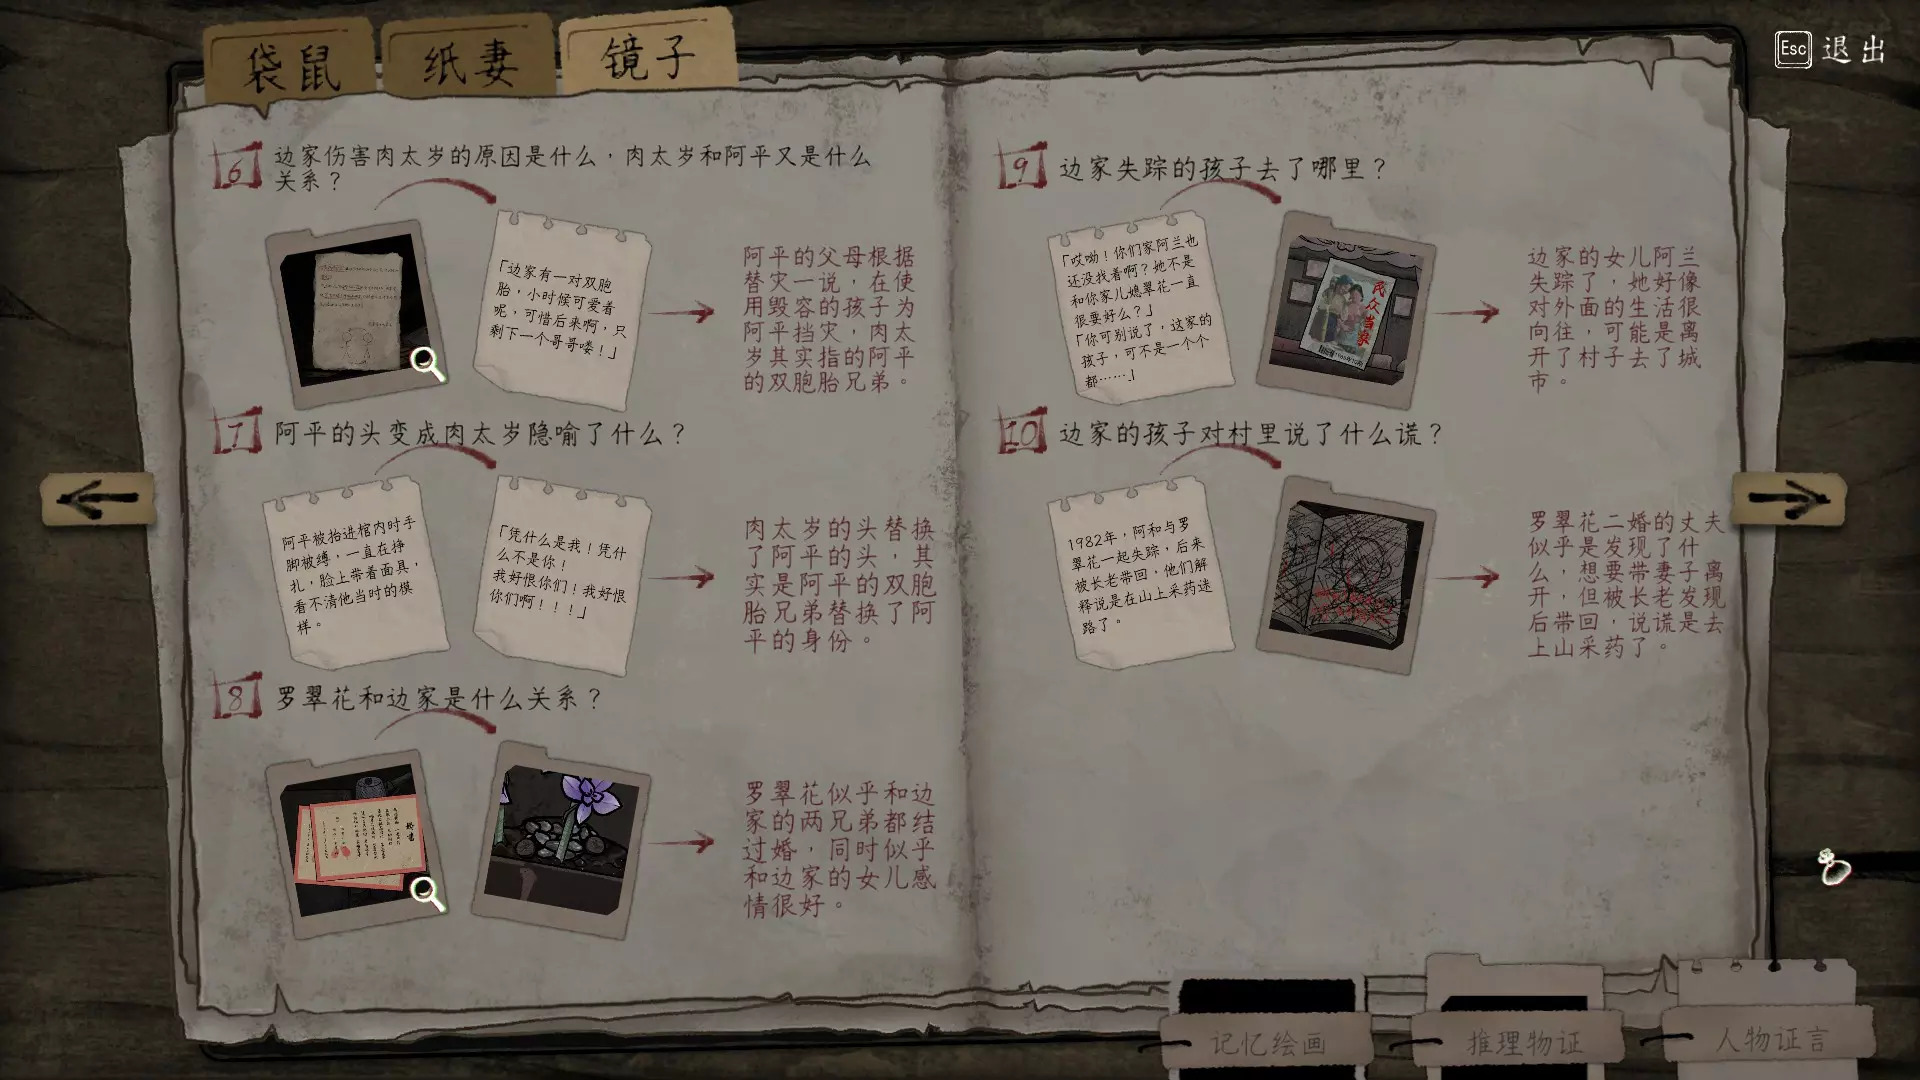 袋鼠
纸妻
镜子
Esc 退出
6 边家伤害肉太岁的原因是什么，肉太岁和阿平又是什么
关系？
「边家有一对双胞
胎，小时候可爱着
呢，可惜后来啊，只
剩下一个哥哥喽！」
阿平的父母根据
替灾一说，在使
用毁容的孩子为
阿平挡灾，肉太
岁其实指的阿平
的双胞胎兄弟。
7 阿平的头变成肉太岁隐喻了什么？
阿平被抬进棺内时手
脚被缚，一直在挣
扎，脸上带着面具，
看不清他当时的模
样。
「凭什么是我！凭什
么不是你！
我好恨你们！我好恨
你们啊！！！」
肉太岁的头替换
了阿平的头，其
实是阿平的双胞
胎兄弟替换了阿
平的身份。
8 罗翠花和边家是什么关系？
婚书
罗翠花似乎和边
家的两兄弟都结
过婚，同时似乎
和边家的女儿感
情很好。
9 边家失踪的孩子去了哪里？
「哎呦！你们家阿兰也
还没找着啊？她不是
和你家儿媳翠花一直
很要好么？」
「你可别说了，这家的
孩子，可不是一个个
都……」
民众当家
边家的女儿阿兰
失踪了，她好像
对外面的生活很
向往，可能是离
开了村子去了城
市。
10 边家的孩子对村里说了什么谎？
1982年，阿和与罗
翠花一起失踪，后来
被长老带回，他们解
释说是在山上采药迷
路了。
罗翠花二婚的丈夫
似乎是发现了什
么，想要带妻子离
开，但被长老发现
后带回，说谎是去
上山采药了。
记忆绘画
推理物证
人物证言